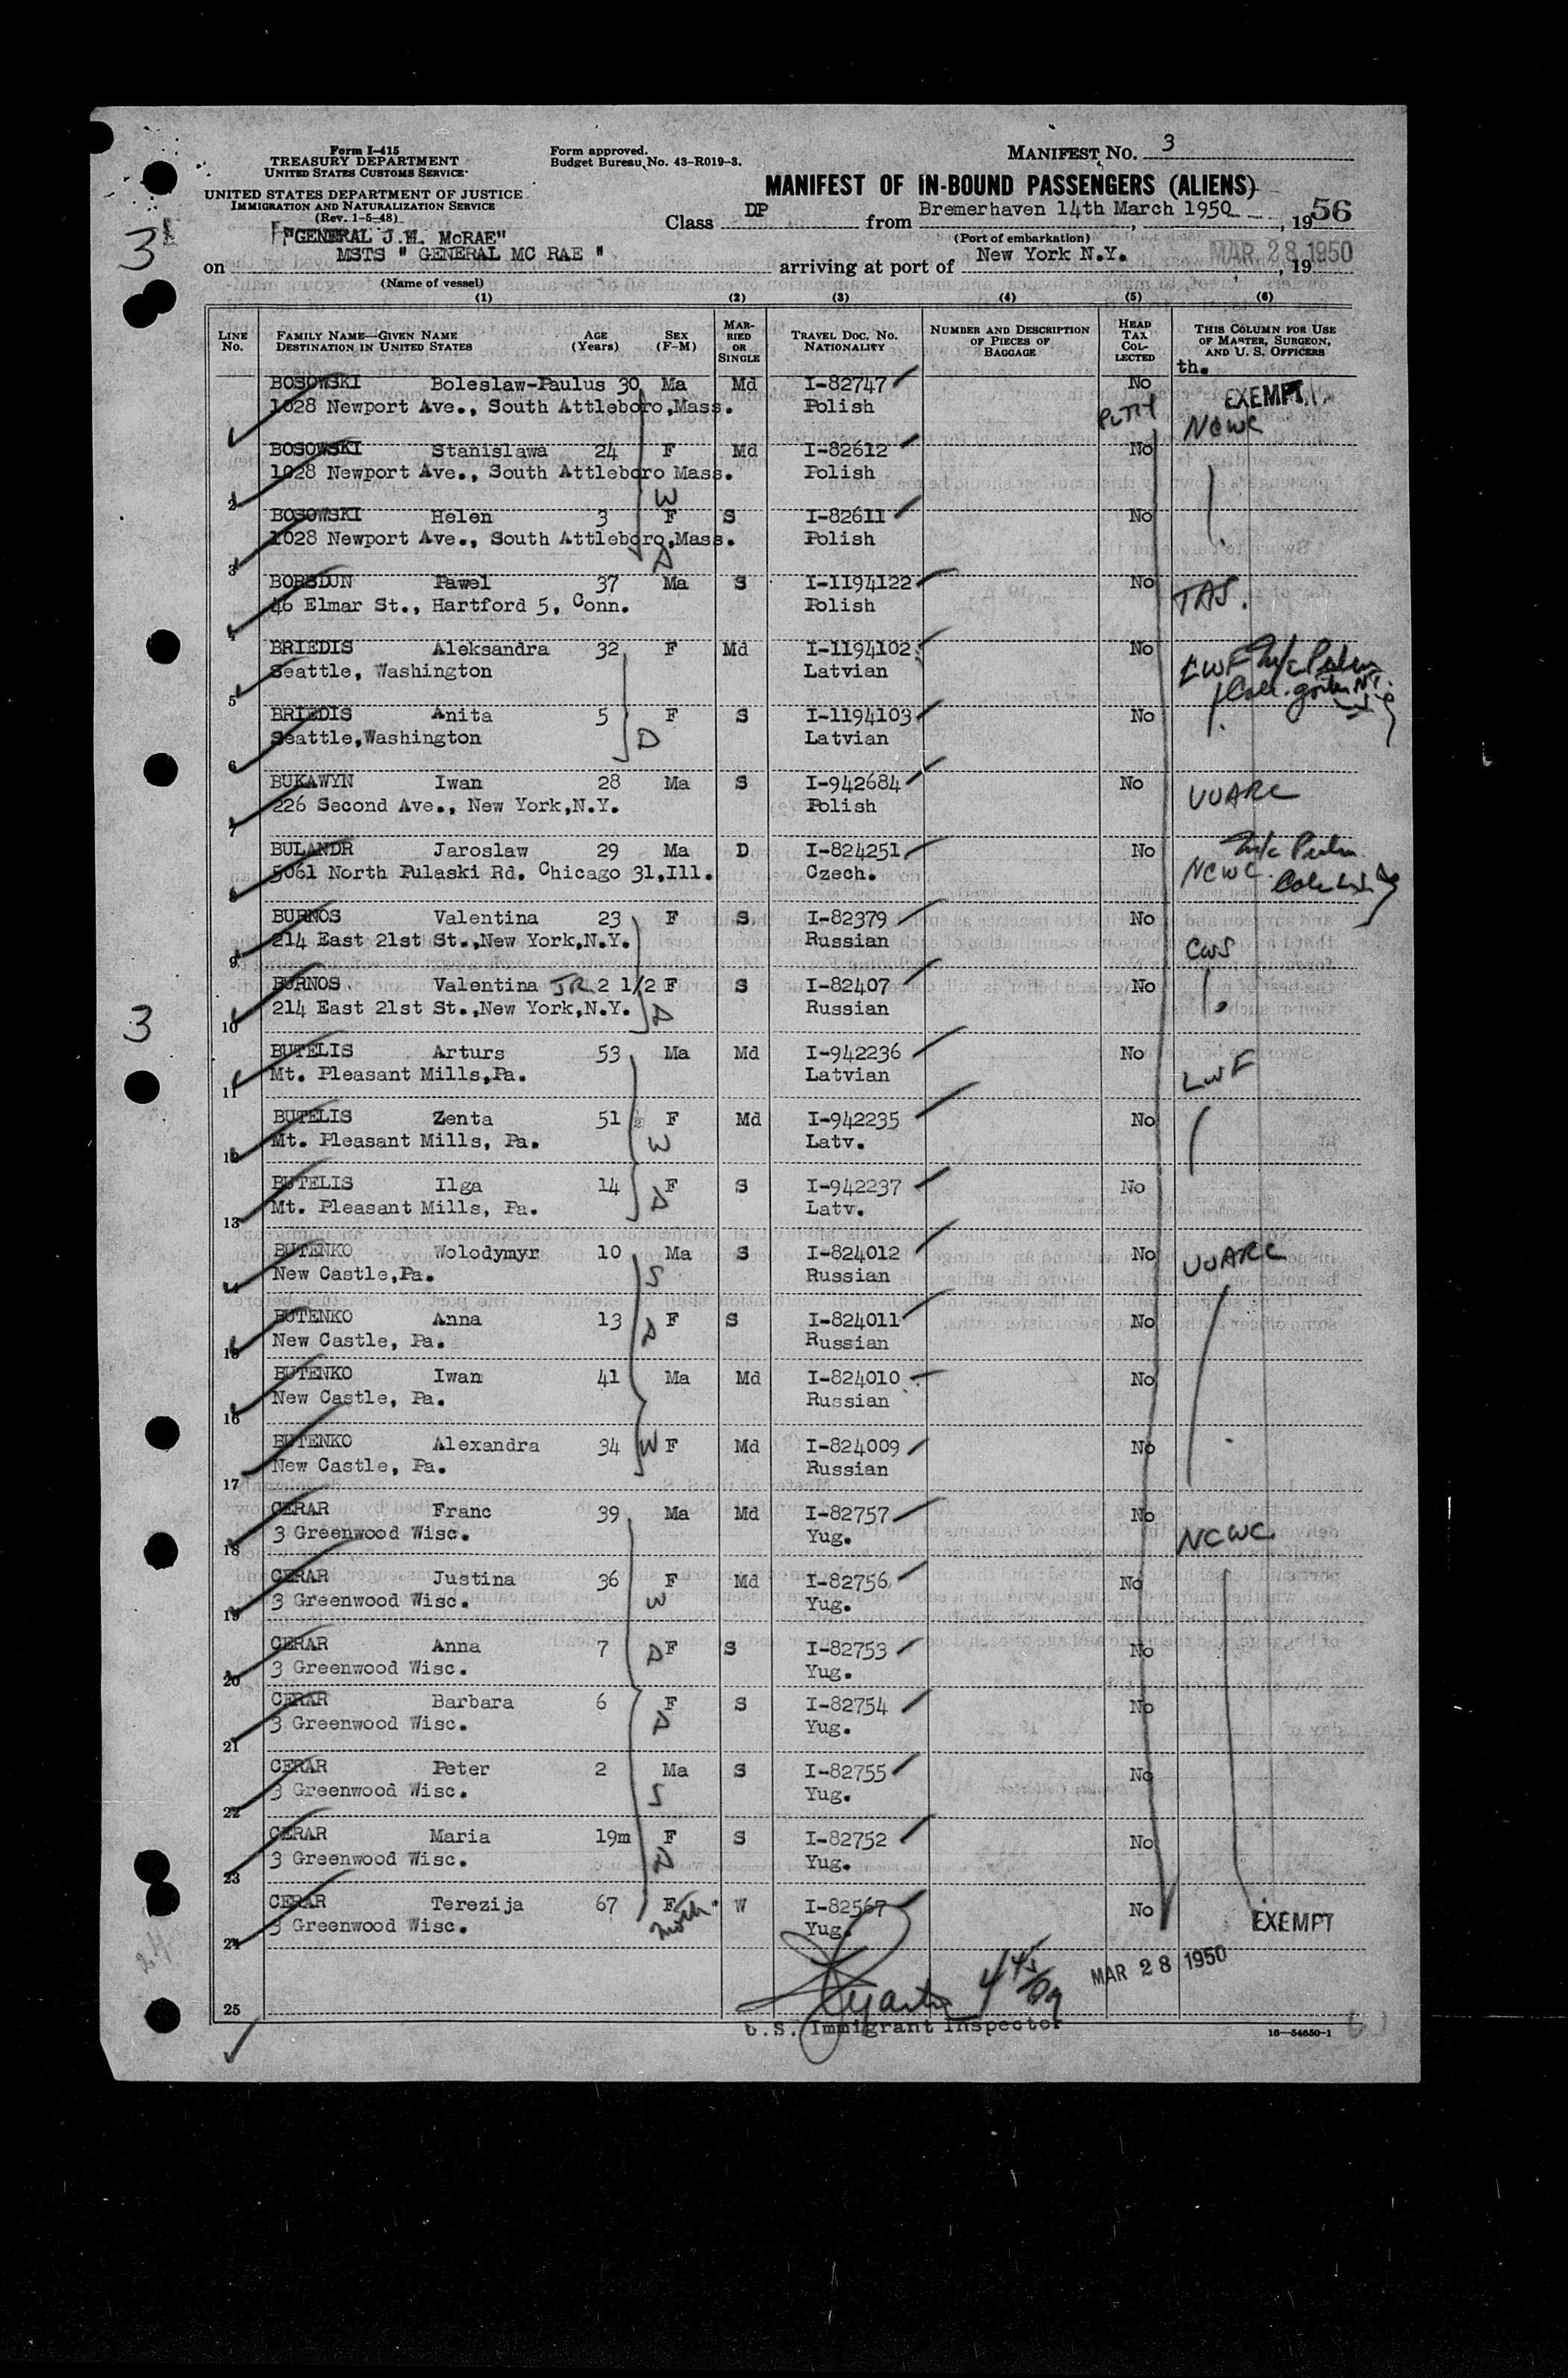 Form I-415
TREASURY DEPARTMENT
UNITED STATES CUSTOMS SERVICE
Form approved.
Budget Bureau No. 43-R019-3.
MANIFEST NO. 3
UNITED STATES DEPARTMENT OF JUSTICE
IMMIGRATION AND NATURALIZATION SERVICE
(Rev. 1-5-48)
MANIFEST OF IN-BOUND PASSENGERS (ALIENS)
Class DP from Bremerhaven 14th March 1950, 19 56
(Port of embarkation)
3
"GENERAL J.H. McRAE"
on MSTS " GENERAL MC RAE " arriving at port of New York N.Y. MAR 28 1950, 19
(Name of vessel)
(1) (2) (3) (4) (5) (6)
LINE No. FAMILY NAME—GIVEN NAME DESTINATION IN UNITED STATES AGE (Years) SEX (F-M) MARRIED OR SINGLE TRAVEL DOC. NO. NATIONALITY NUMBER AND DESCRIPTION OF PIECES OF BAGGAGE HEAD TAX COLLECTED THIS COLUMN FOR USE OF MASTER, SURGEON, AND U. S. OFFICERS
th.
BOSOWSKI Boleslaw-Paulus 30 Ma Md I-82747 No EXEMPT
1028 Newport Ave., South Attleboro,Mass. Polish NCWC
BOSOWSKI Stanislawa 24 F Md I-82612 No
1028 Newport Ave., South Attleboro Mass. Polish
2 W
BOSOWSKI Helen 3 F S I-82611 No
1028 Newport Ave., South Attleboro,Mass. Polish
3 D
BORSDUN Pawel 37 Ma S I-1194122 No TAS.
46 Elmar St., Hartford 5, Conn. Polish
4
BRIEDIS Aleksandra 32 F Md I-1194102 No LWF
Seattle, Washington Latvian
5
BRIEDIS Anita 5 F S I-1194103 No
Seattle,Washington D Latvian
6
BUKAWYN Iwan 28 Ma S I-942684 No UUARC
226 Second Ave., New York,N.Y. Polish
7
BULANDR Jaroslaw 29 Ma D I-824251 No
5061 North Pulaski Rd. Chicago 31,Ill. Czech. NCWC
8
BURNOS Valentina 23 F S I-82379 No
214 East 21st St.,New York,N.Y. Russian CWS
9
BURNOS Valentina JR. 2 1/2 F S I-82407 No
214 East 21st St.,New York,N.Y. D Russian
10
3
BUTELIS Arturs 53 Ma Md I-942236 No
Mt. Pleasant Mills,Pa. Latvian LWF
11
BUTELIS Zenta 51 F Md I-942235 No
Mt. Pleasant Mills, Pa. W Latv.
12
BUTELIS Ilga 14 F S I-942237 No
Mt. Pleasant Mills, Pa. D Latv.
13
BUTENKO Wolodymyr 10 Ma S I-824012 No UUARC
New Castle,Pa. S Russian
14
BUTENKO Anna 13 F S I-824011 No
New Castle, Pa. D Russian
15
BUTENKO Iwan 41 Ma Md I-824010 No
New Castle, Pa. Russian
16
BUTENKO Alexandra 34 W F Md I-824009 No
New Castle, Pa. Russian
17
CERAR Franc 39 Ma Md I-82757 No
3 Greenwood Wisc. Yug. NCWC
18
CERAR Justina 36 F Md I-82756 No
3 Greenwood Wisc. W Yug.
19
CERAR Anna 7 D F S I-82753 No
3 Greenwood Wisc. Yug.
20
CERAR Barbara 6 F S I-82754 No
3 Greenwood Wisc. D Yug.
21
CERAR Peter 2 Ma S I-82755 No
3 Greenwood Wisc. S Yug.
22
CERAR Maria 19m F S I-82752 No
3 Greenwood Wisc. D Yug.
23
CERAR Terezija 67 F moth. W I-82567 No
3 Greenwood Wisc. Yug. EXEMPT
24
MAR 28 1950
25
U.S. Immigrant Inspector
16—54650-1